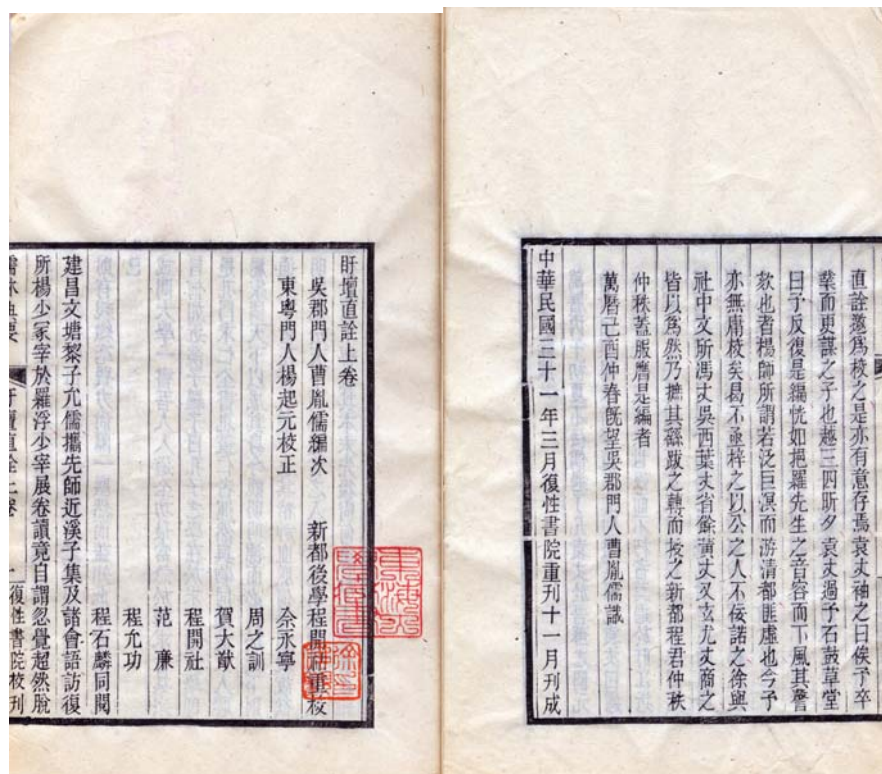 直詮邀爲校之是亦有意存焉袁丈袖之曰俟予卒
業而更謀之子也越三四昕夕袁丈過予石鼓草堂
曰予反復是編恍如挹羅先生之音容而下風其謦
欬也者楊師所謂若泛巨溟而游清都匪虛也今予
亦無庸校矣曷不亟梓之以公之人不佞諾之徐與
社中文所馮丈吳西葉丈省餘黃丈又玄尤丈商之
皆以爲然乃摭其繇跋之轉而授之新都程君仲秩
仲秩蓋服膺是編者
萬曆己酉仲春既望吳郡門人曹胤儒識
中華民國三十一年三月復性書院重刊十一月刊成
盱壇直詮上卷
吳郡門人曹胤儒編次 新都後學程開祜重校
東粵門人楊起元校正 佘永寧
周之訓
賀大猷
程開社
范廉
程允功
程石麟同閱
建昌文塘黎子允儒攜先師近溪子集及諸會語訪復
所楊少冢宰於羅浮少宰展卷讀竟自謂忽覺超然脫
盱壇直詮上卷 一 復性書院校刊